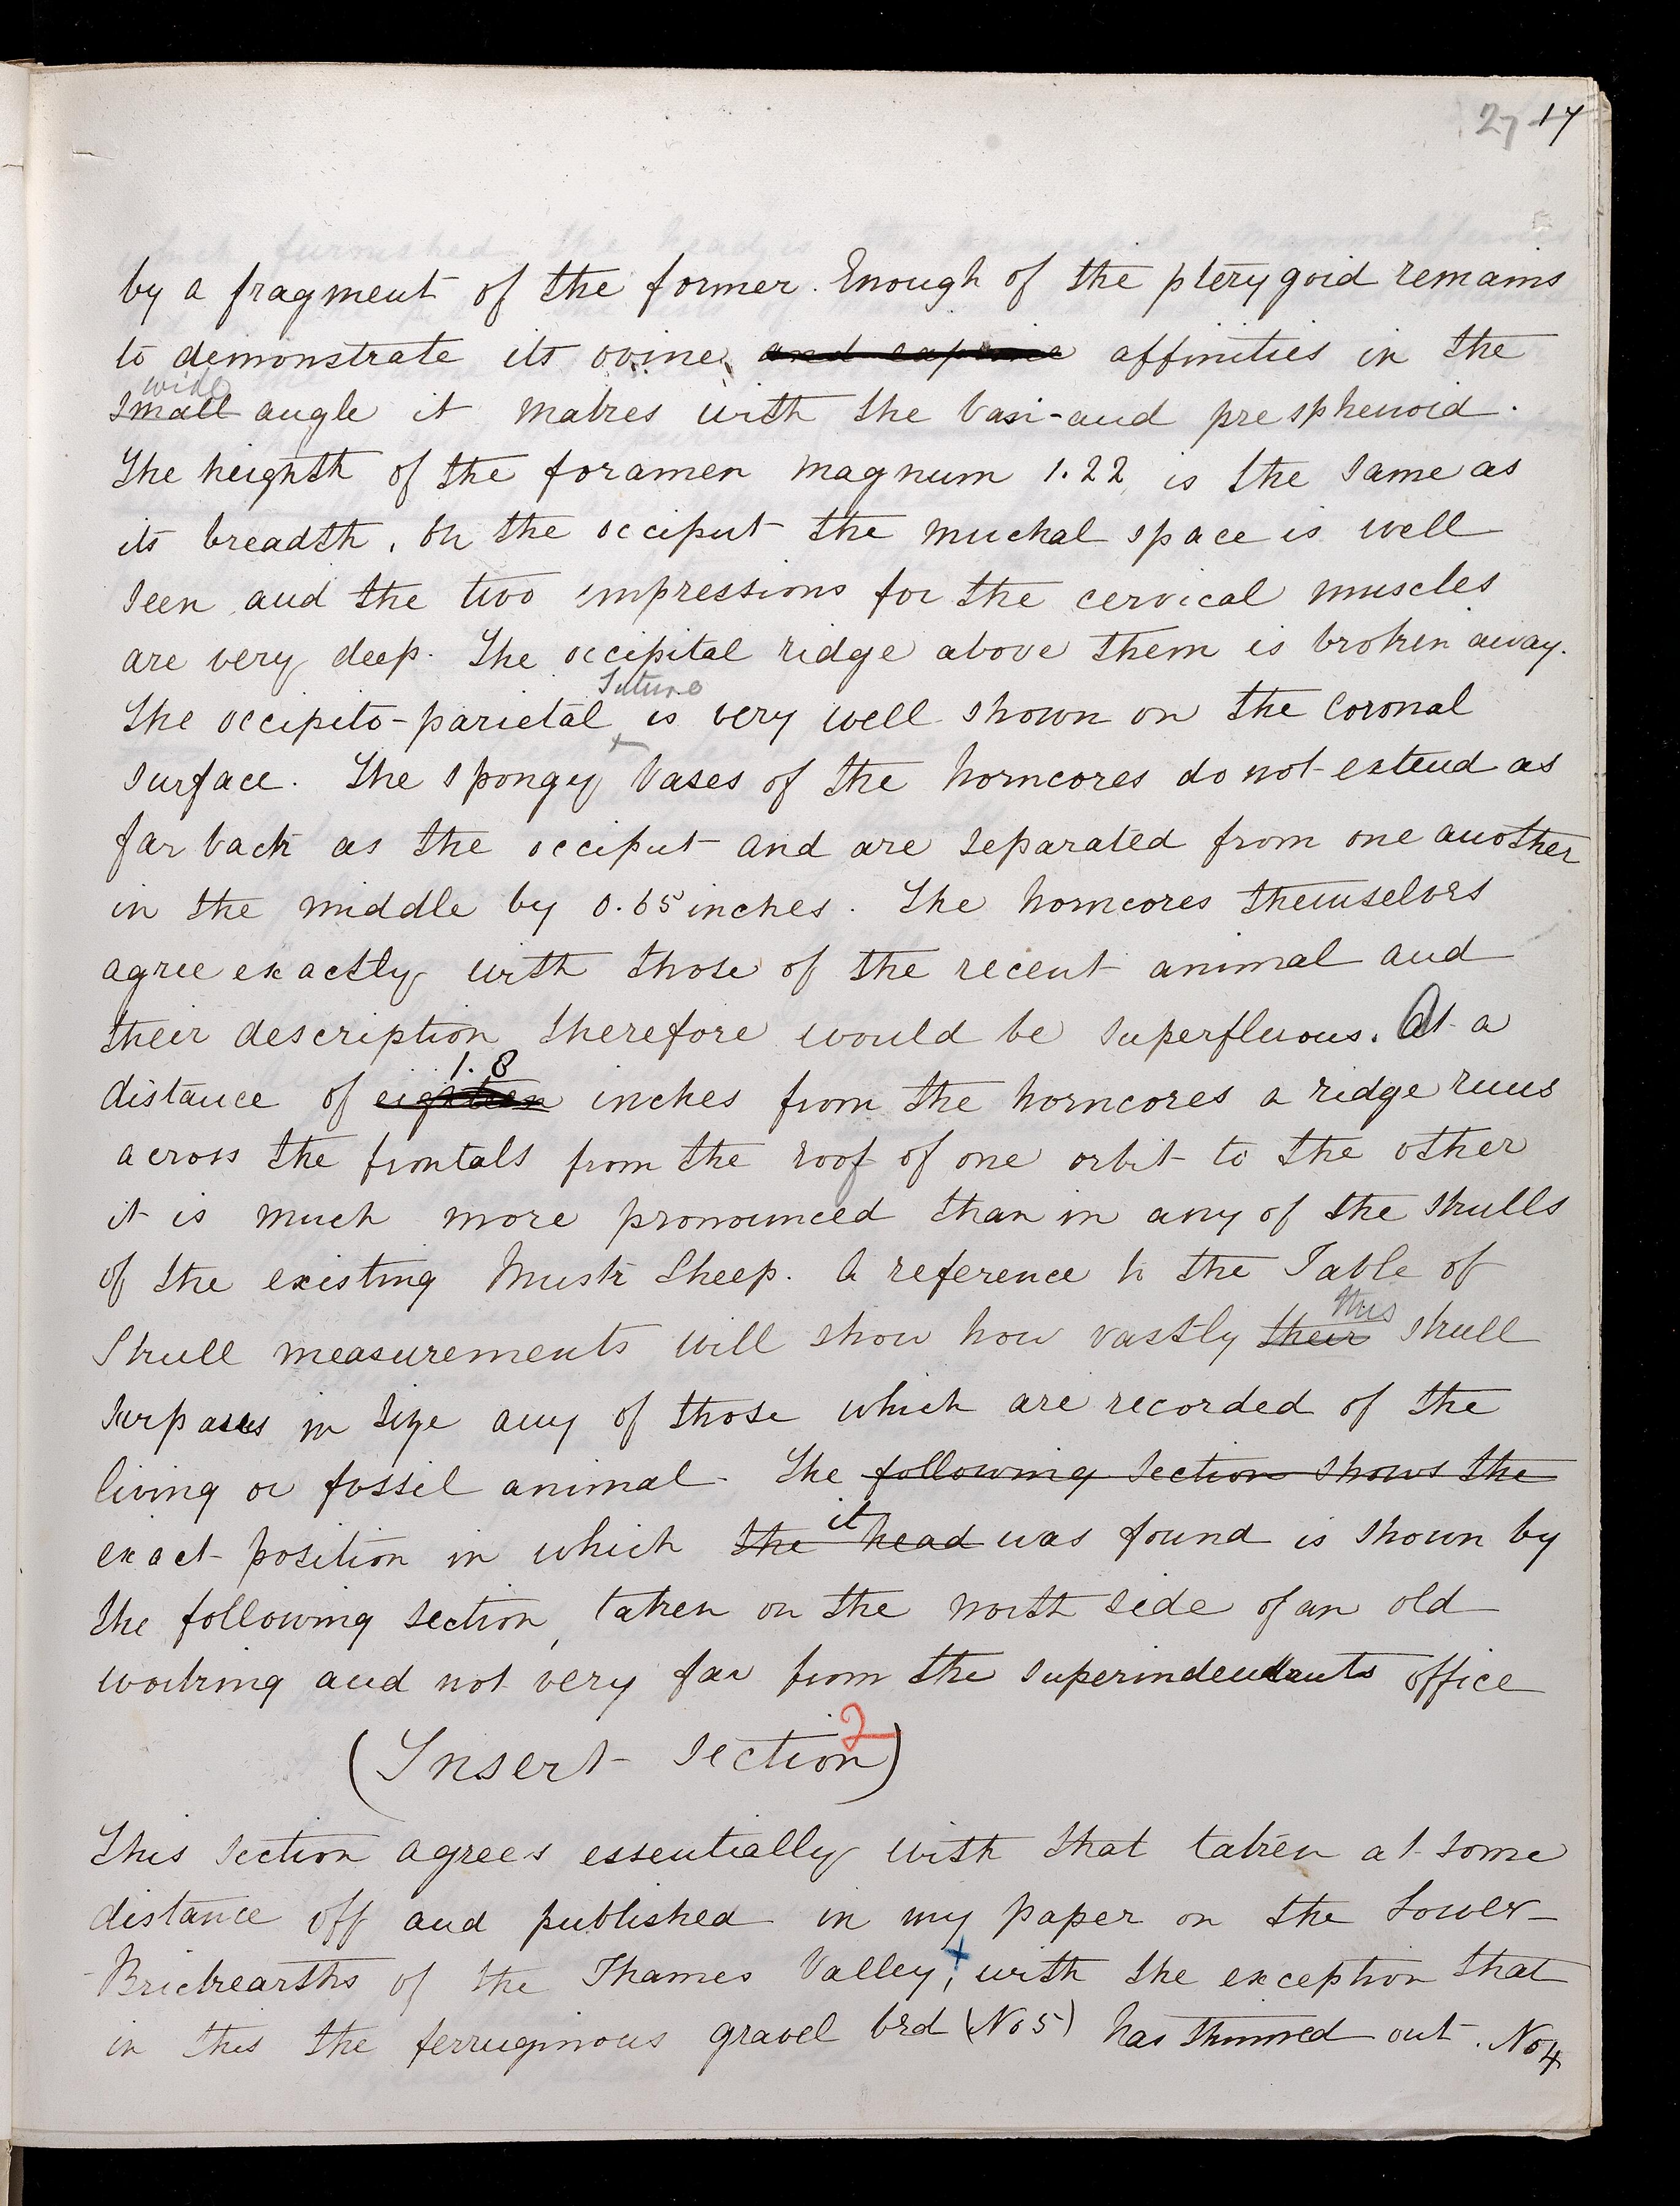 27 17
by a fragment of the former. Enough of the pterygoid remains
to demonstrate its ovine and caprine affinities in the
wide
small angle it makes with the basi-and presphenoid.
The heighth of the foramen magnum 1.22 is the same as
its breadth. On the occiput the nuchal space is well
seen and the two impressions for the cervical muscles
are very deep. The occipital ridge above them is broken away.
suture
The occipito-parietal is very well shown on the coronal
surface. The spongy bases of the horncores do not extend as
far back as the occiput and are separated from one another
in the middle by 0.65 inches. The horncores themselves
agree exactly with those of the recent animal and
their description therefore would be superfluous. At a
1.8
distance of eighteen inches from the horncores a ridge runs
across the frontals from the roof of one orbit to the other
it is much more pronounced than in any of the skulls
of the existing Musk Sheep. A reference to the Table of
this
Skull measurements will show how vastly their skull
surpasses in size any of those which are recorded of the
living or fossil animal. The following section shows the
it
exact position in which the head was found is shown by
the following section, taken on the north side of an old
working and not very far from the superindendants office
2
(Insert Section)
This section agrees essentially with that taken at some
distance off and published in my paper on the Lower
Brickearths of the Thames Valley,+ with the exception that
in this the ferruginous gravel bed (No 5) has thinned out. No 4